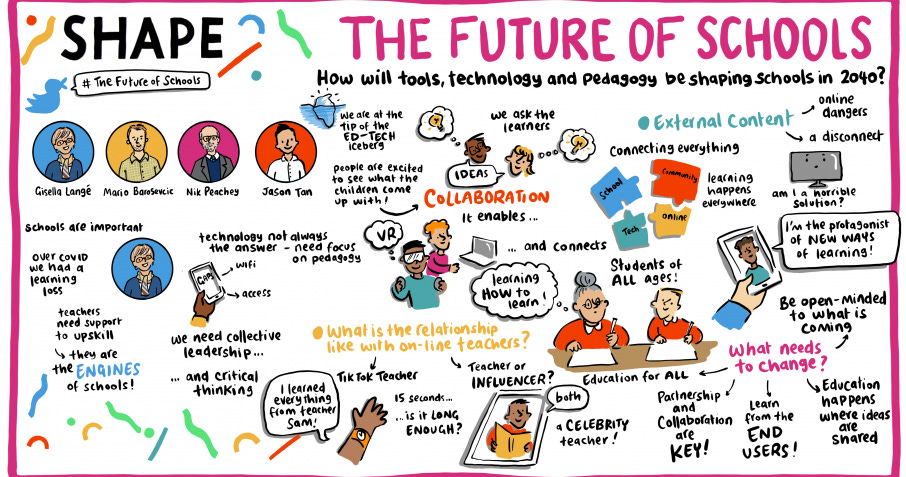 SHAPE
# The Future of Schools
THE FUTURE OF SCHOOLS
How will tools, technology and pedagogy be shaping schools in 2040?
Gisella Langé
Mario Barosevcic
Nik Peachey
Jason Tan
We are at the
tip of the
ED-TECH
iceberg
people are excited
to see what the
children come
up with!
we ask the
learners
IDEAS
COLLABORATION
It enables ...
VR
... and connects
learning
HOW to
learn!
External Content
online
dangers
a disconnect
Connecting everything
School
Community
Tech
online
learning
happens
everywhere
am I a horrible
solution?
Students of
ALL ages!
I'm the protagonist
of NEW WAYS
of learning!
Schools are important
over COVID
we had a
learning
loss
teachers
need support
to upskill
they are
the ENGINES
of schools!
technology not always
the answer - need focus
on pedagogy
GAPS
wifi
access
we need collective
leadership ...
... and critical
thinking
What is the relationship
like with on-line teachers?
TikTok Teacher
I learned
everything
from teacher
Sam!
15 seconds...
... is it LONG
ENOUGH?
Teacher or
INFLUENCER?
both
a CELEBRITY
teacher!
What needs
to change?
Education for ALL
Partnership
and
Collaboration
are
KEY!
Learn
from the
END
USERS!
Education
happens
where ideas
are
shared
Be open-minded
to what is
coming